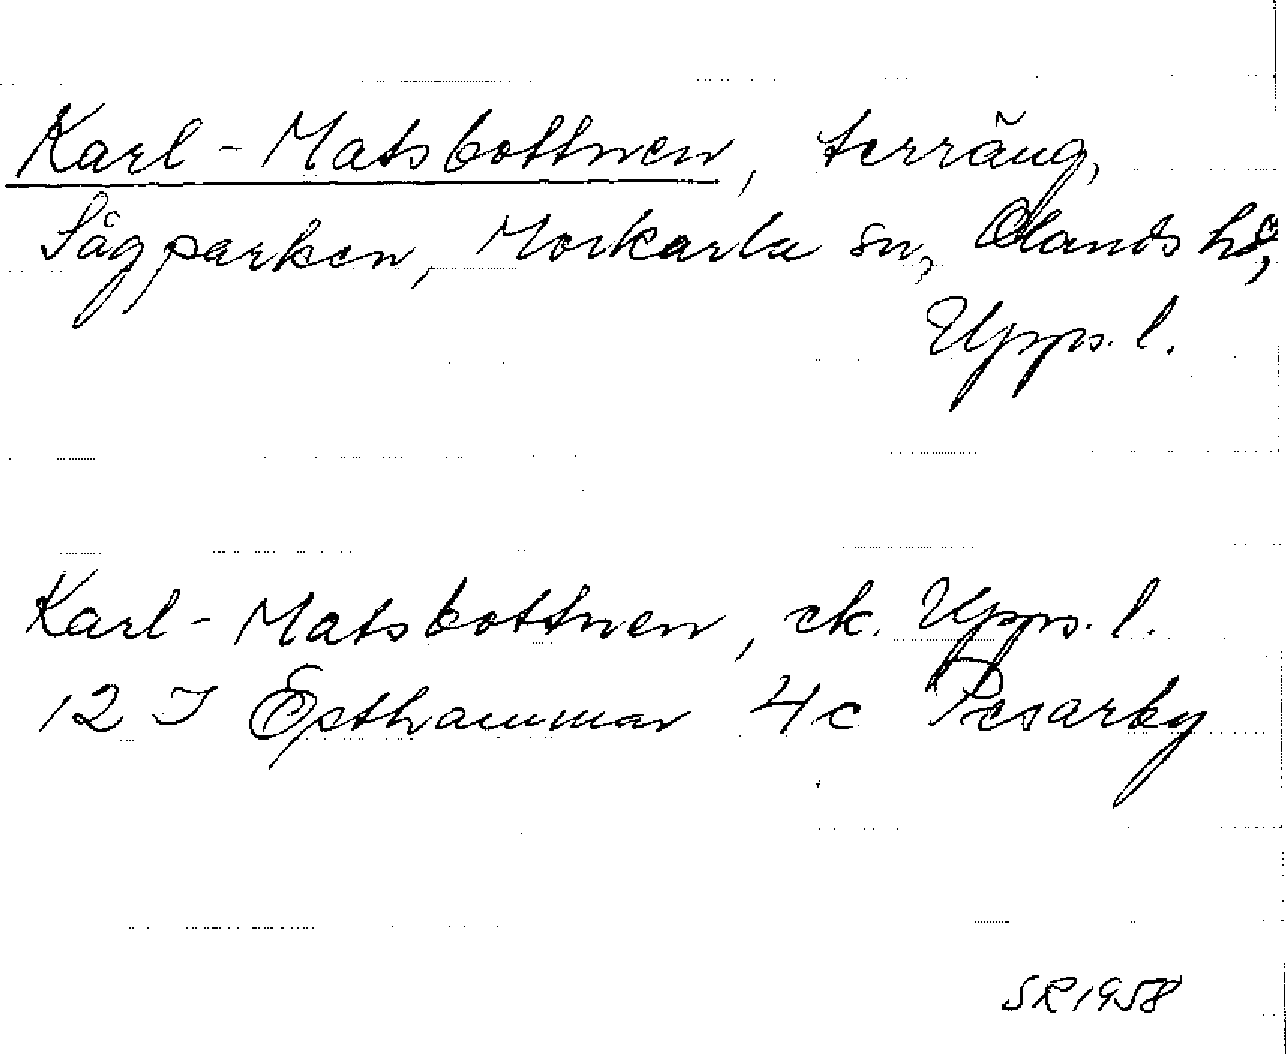 Karl-Matsbottnen, terräng,
Sågparken, Morkarla sn, Olands hd,
Upps. l.
Karl-Matsbottnen, ek. Upps. l.
12 I Östhammar 4c Pesarby
SR 1958